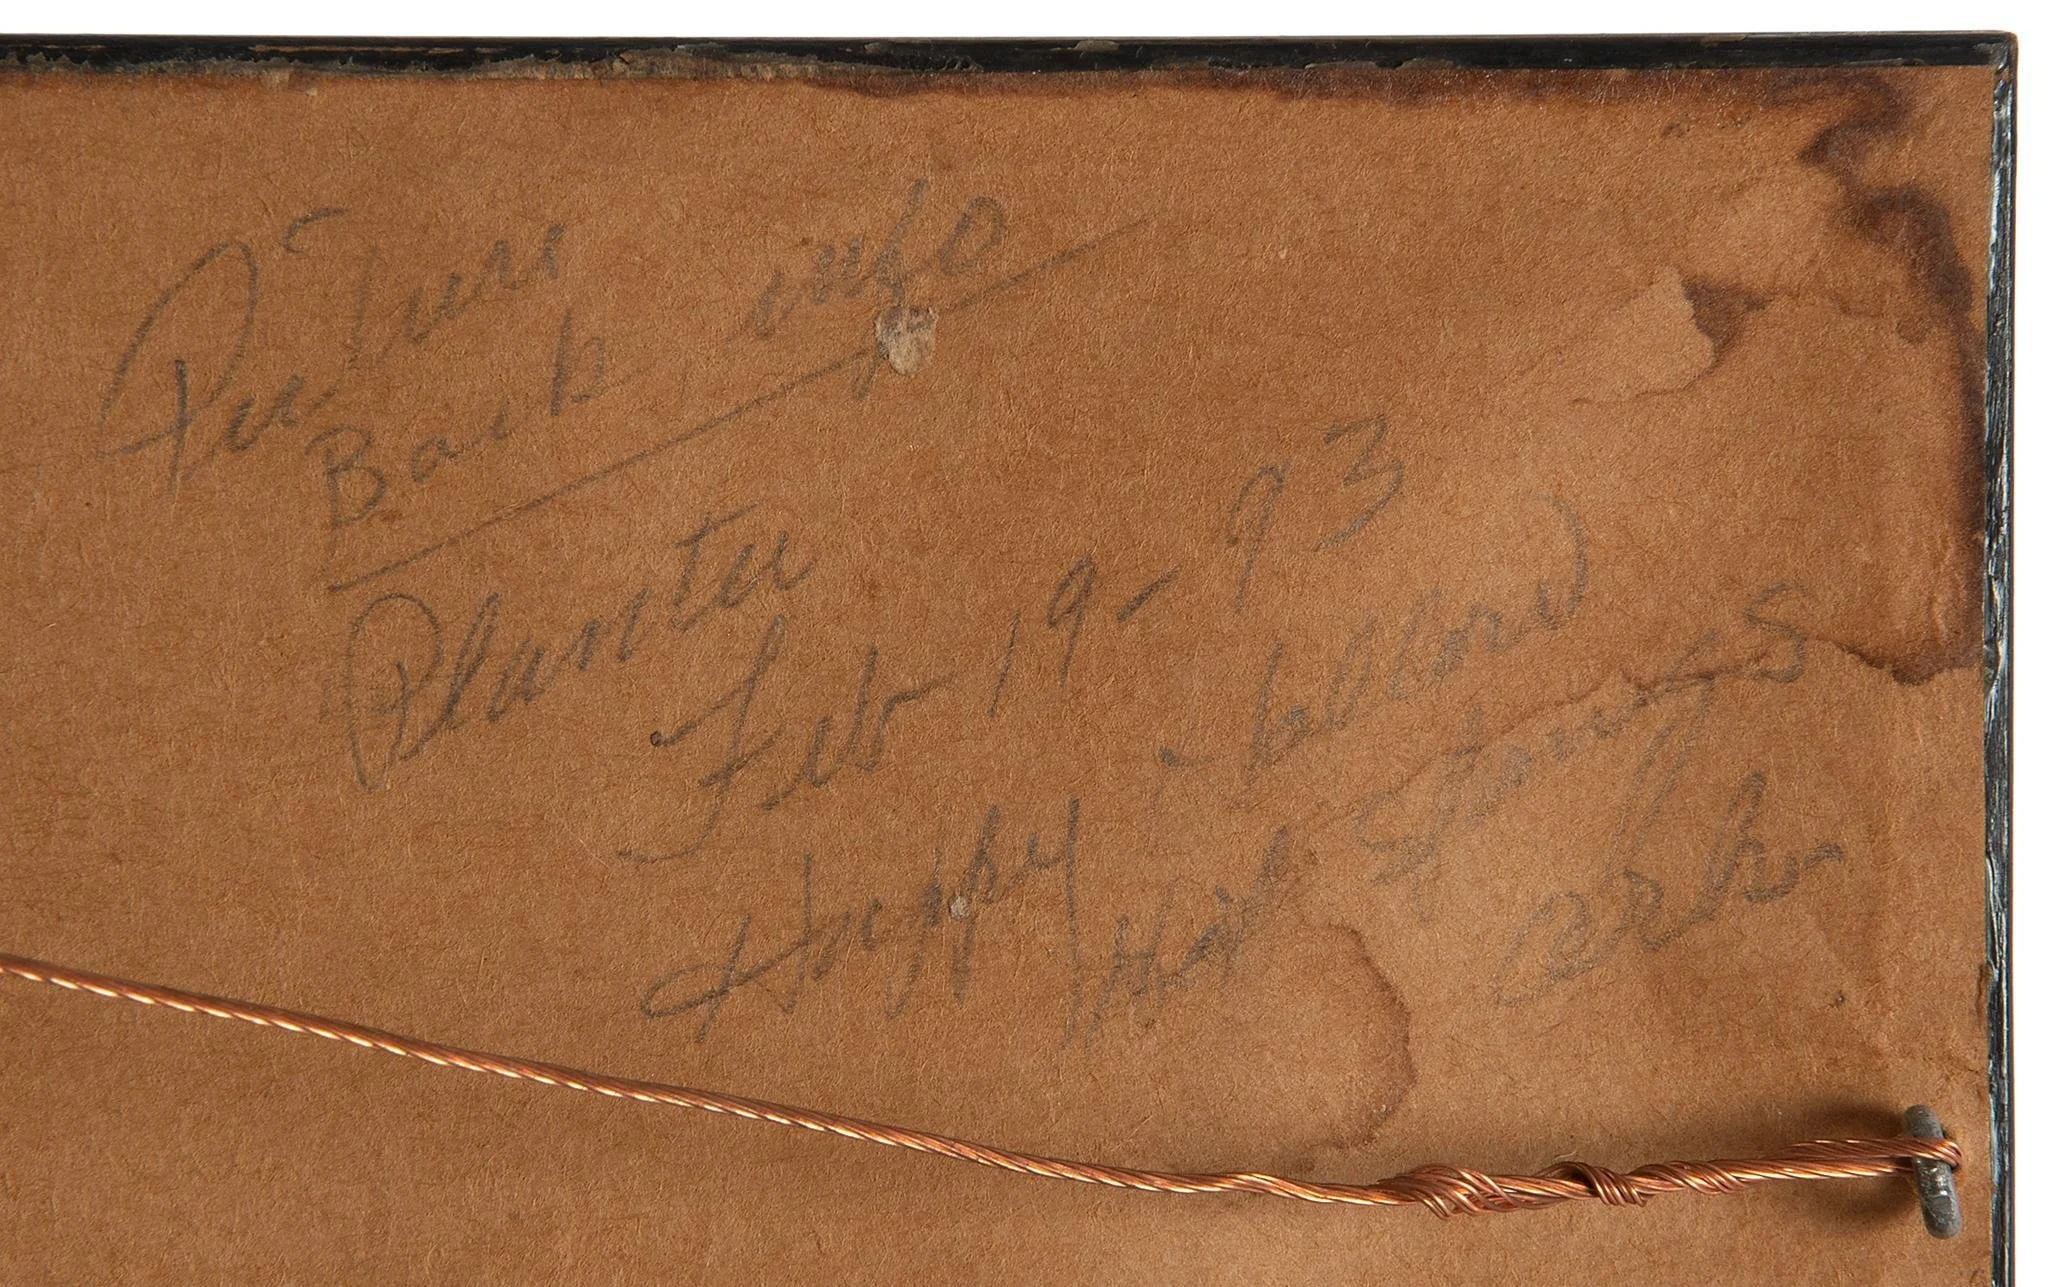 Picture
Back info
Planter
Feb 19-93
Happy Hollow
Hot Springs
Ark